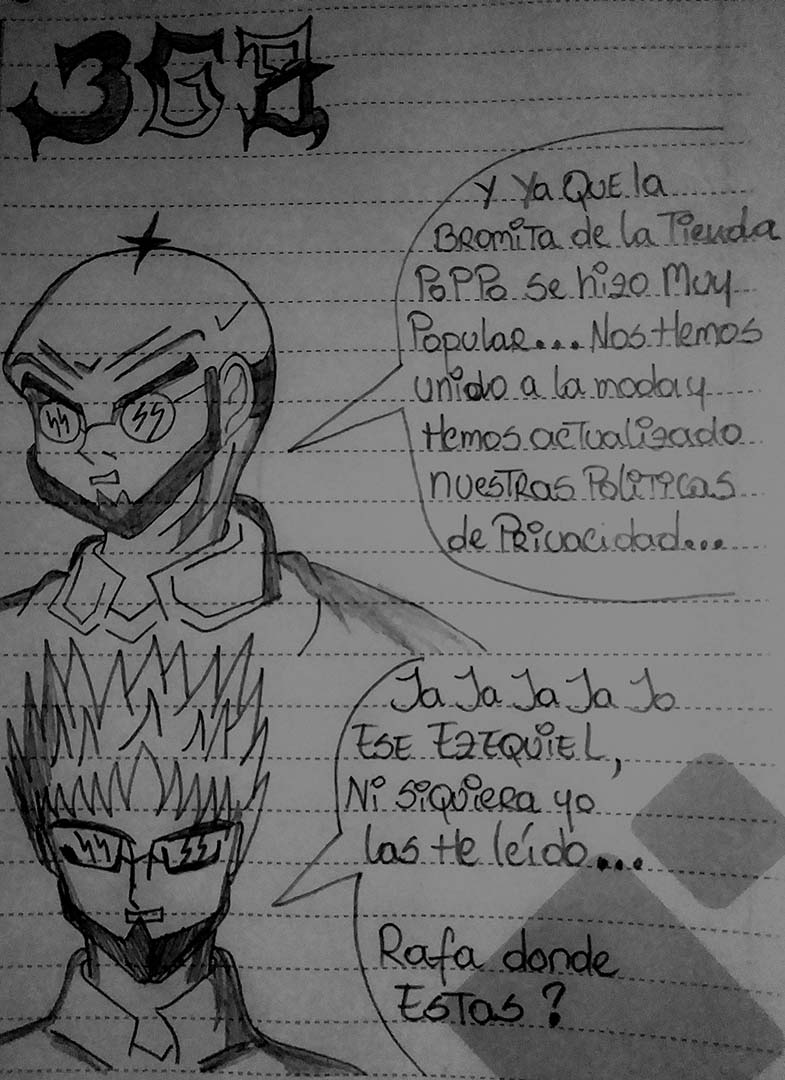 368
Y Ya QUE la
BROMiTA de la Tienda
PoPPo se hizo Muy
Popular... Nos Hemos
unido a la moda y
Hemos actualizado
nuestras Politicas
de Privacidad...
Ja Ja Ja Ja Jo
ESE EZEQUiEL,
Ni SiQUiERA yo
las He leído...
Rafa donde
ESTas?